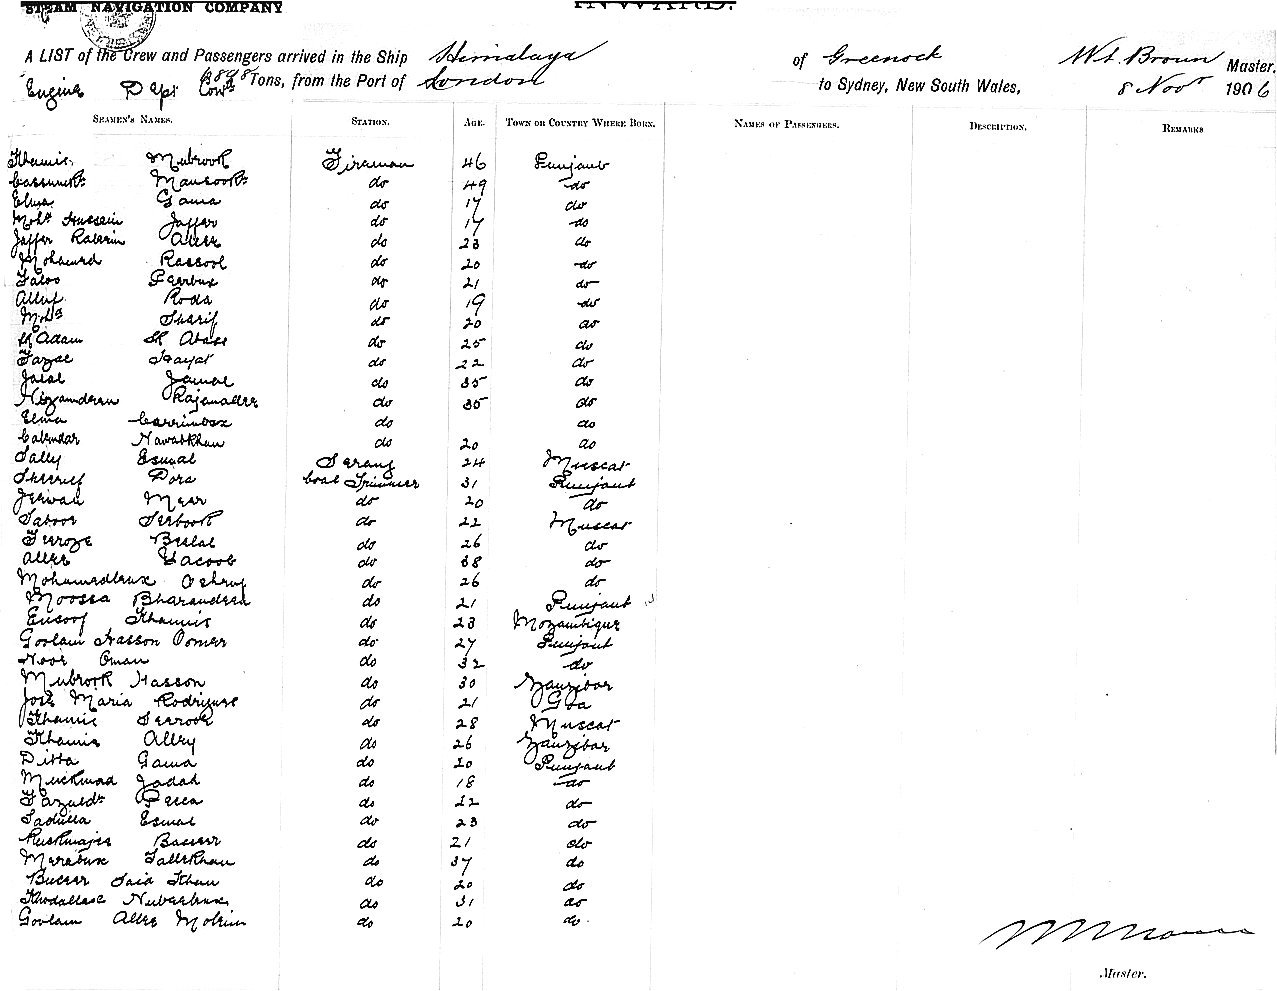 STEAM NAVIGATION COMPANY
INWARD.
A LIST of the Crew and Passengers arrived in the Ship Himalaya of Greenock Wt. Brown Master,
Engine Dept Tons, from the Port of London to Sydney, New South Wales, 8 Novr 1906
SEAMEN'S NAMES. STATION. AGE. TOWN OR COUNTRY WHERE BORN. NAMES OF PASSENGERS. DESCRIPTION. REMARKS
Khamis Mubrook Fireman 46 Punjaub
do 49 do
Gama do 17 do
Mohd Hussein Jaffer do 17 do
Jaffer do 23 do
Mohamed Rassool do 20 do
do 21 do
Roda do 19 do
Mohd Sharif do 20 do
Sk Adam Sk Abass do 25 do
Fazal Hayat do 22 do
Jalal Jamal do 35 do
Nizamdeen Rajanallee do 35 do
do do
Calendar Nawabkhan do 20 do
Sally Esmal Serang 24 Muscat
Sherriff Dora Coal Trimmer 31 Punjaub
Jeewan Meer do 20 do
Saboor do 22 Muscat
Feroze Belal do 26 do
Allee Yacoob do 38 do
Mohamedbux Oshruf do 26 do
Moossa Bharamdeen do 21 Punjaub
Eusoof Khamis do 23 Mozambique
Goolam Hasson Oomer do 27 Punjaub
Noor Oman do 32 do
Mubrook Hasson do 30 Zanzibar
José Maria Rodrigues do 21 Goa
Khamis do 28 Muscat
Khamis Alley do 26 Zanzibar
Ditta Gama do 20 Punjaub
Jadad do 18 do
do 22 do
Sadulla Esmal do 23 do
do 21 do
Merabux do 37 do
Said Khan do 20 do
do 31 do
Goolam Allee do 20 do
Master.